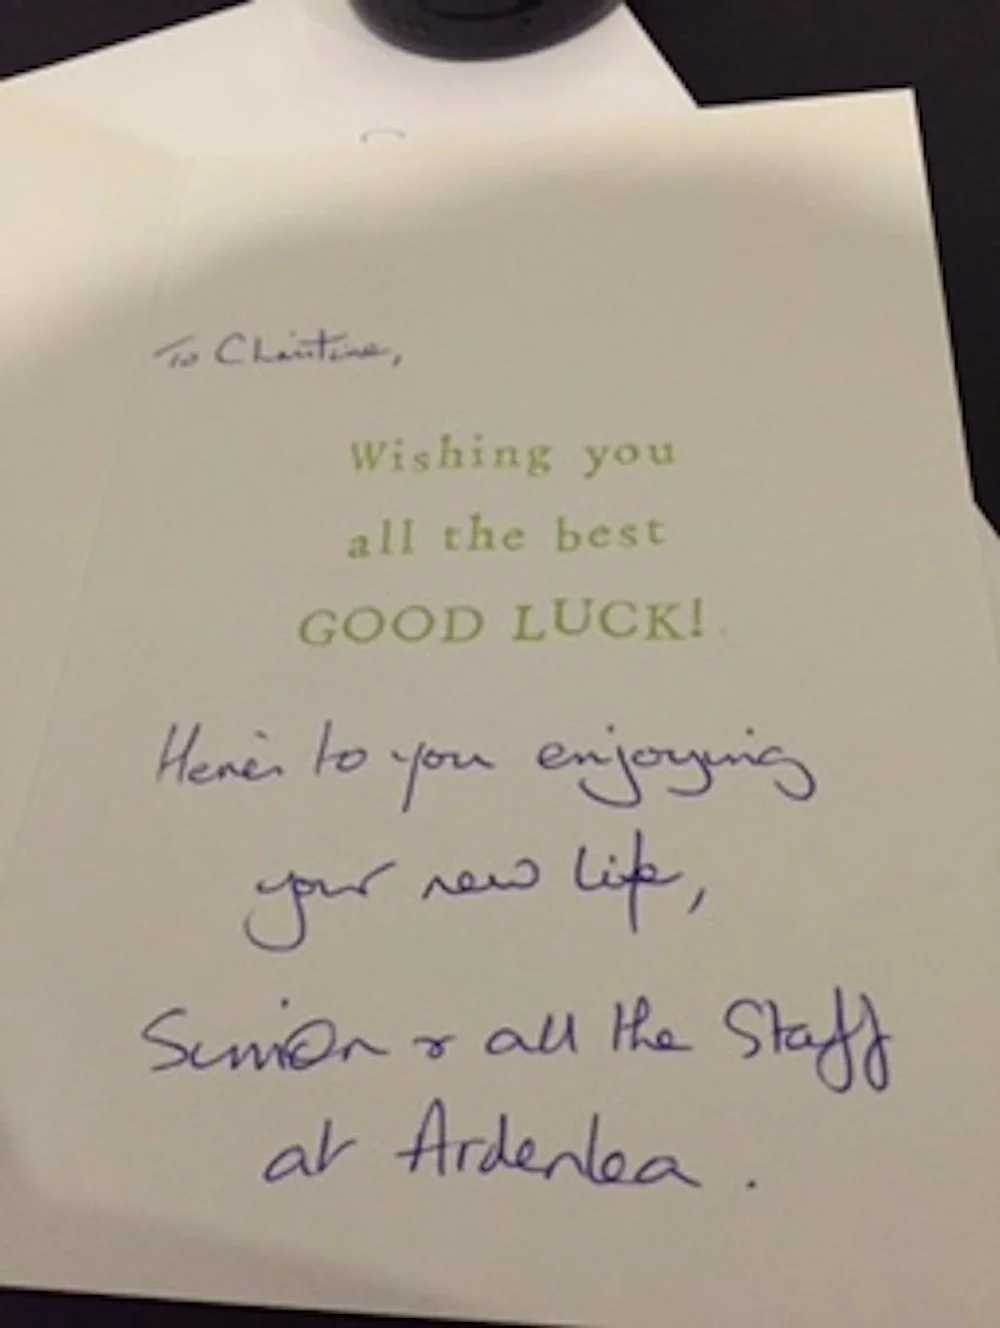 To Christine,
Wishing you
all the best
GOOD LUCK!
Here's to you enjoying
your new life,
Simon & all the Staff
at Ardenlea.